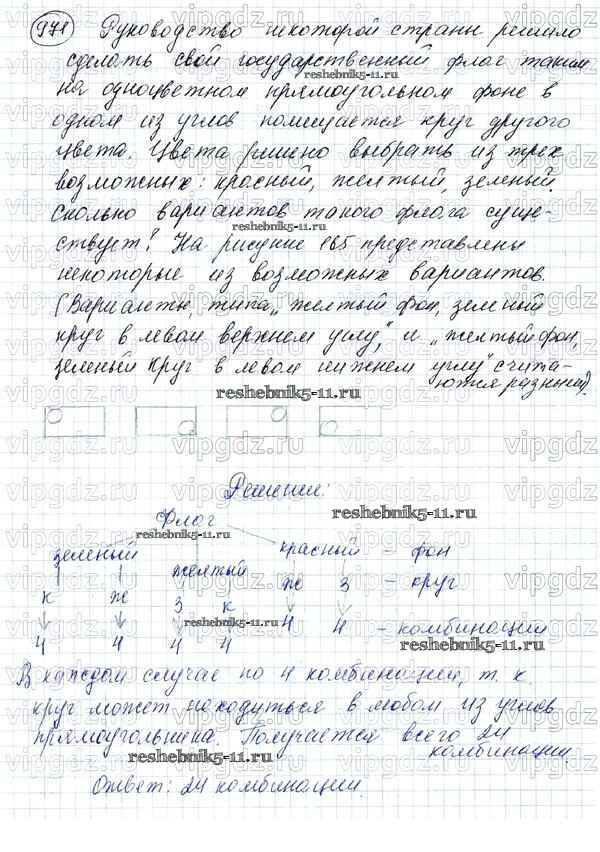 971 Руководство некоторой страны решило
сделать свой государственный флаг таким
reshebnik5-11.ru
на одноцветном прямоугольном фоне в
одном из углов помещается круг другого
цвета. Цвета решено выбрать из трех
возможных: красный, желтый, зеленый.
Сколько вариантов такого флага суще-
reshebnik5-11.ru
ствует? На рисунке 165 представлены
некоторые из возможных вариантов.
(Варианты, типа „желтый фон, зеленый
круг в левом верхнем углу", и „желтый фон,
зеленый круг в левом нижнем углу" счита-
ются разными).
reshebnik5-11.ru
Решение:
reshebnik5-11.ru
Флаг
reshebnik5-11.ru
зеленый желтый красный – фон
к ж з к ж з – круг
reshebnik5-11.ru
4 4 4 4 4 4 – комбинации
В каждом случае по 4 комбинации, т. к.
круг может находиться в любом из углов
прямоугольника. Получается всего 24
комбинации.
reshebnik5-11.ru
Ответ: 24 комбинации.